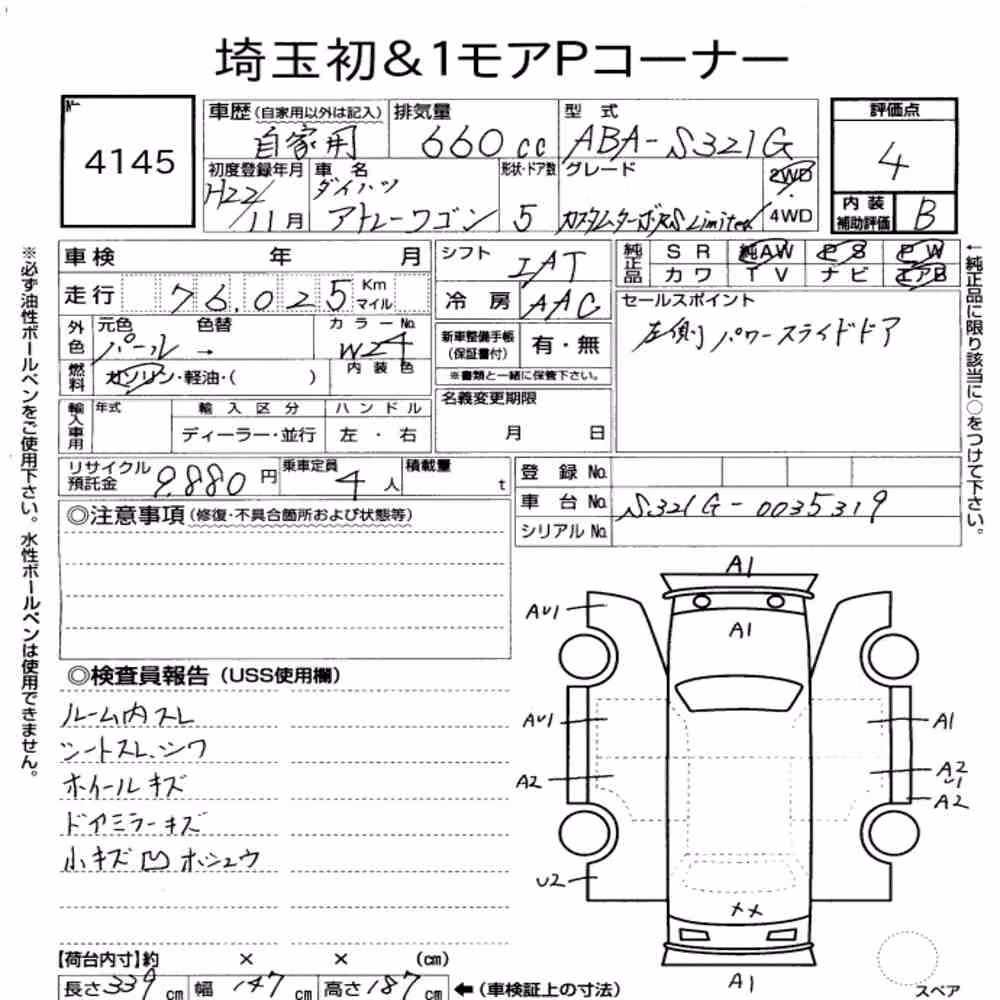 埼玉初&1モアPコーナー
No.
4145
車歴(自家用以外は記入)
自家用
排気量
660cc
型式
ABA-S321G
評価点
4
内装補助評価
B
初度登録年月
H22/11月
車名
ダイハツ
アトレーワゴン
形状・ドア数
5
グレード
カスタムターボRS Limited
2WD
・
4WD
車検 年 月
走行 76,025 Km マイル
外色
元色 色替
パール →
カラーNo.
W24
内装色
燃料
ガソリン・軽油・( )
輸入車用
年式
輸入区分
ディーラー・並行
ハンドル
左・右
シフト
IAT
冷房
AAC
新車整備手帳
(保証書付)
有・無
※書類と一緒に保管下さい。
名義変更期限
月 日
純正品
SR 純AW PS PW
カワ TV ナビ エアB
セールスポイント
左側パワースライドドア
←純正品に限り該当に○をつけて下さい。
※必ず油性ボールペンをご使用下さい。水性ボールペンは使用できません。
リサイクル預託金
9,880円
乗車定員
4人
積載量
t
登録No.
車台No.
S321G-0035319
シリアルNo.
◎注意事項(修復・不具合箇所および状態等)
◎検査員報告(USS使用欄)
ルーム内スレ
シートスレ、シワ
ホイールキズ
ドアミラーキズ
小キズ凹ホシュウ
A1
AU1
A1
AU1
A1
A2
A2
U1
A2
U2
××
A1
【荷台内寸】約 × × (cm)
長さ339cm 幅147cm 高さ187cm ←(車検証上の寸法)
スペア